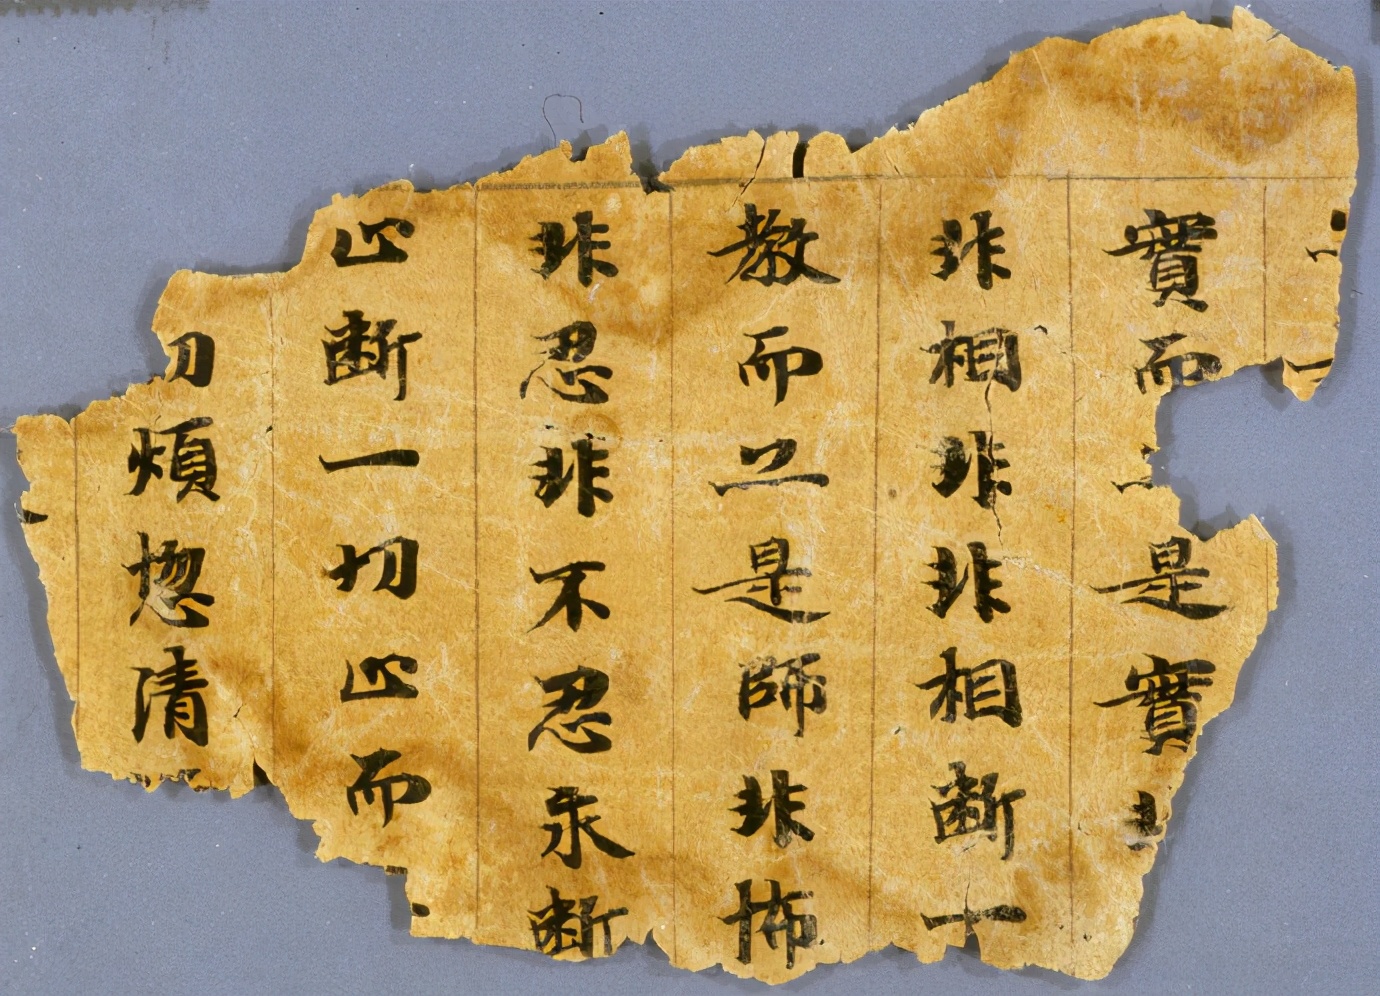 實而是實
非相非非相斷
教而二是師非怖
非忍非不忍永斷
止斷一切止而
切煩惚清